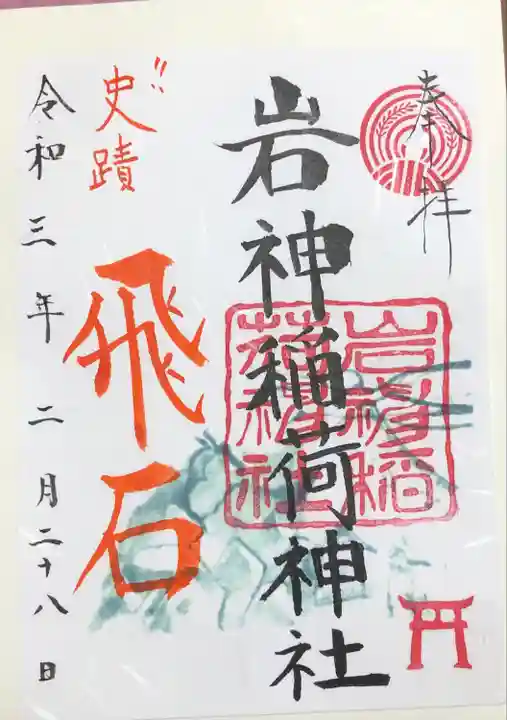 奉拝
岩神稲荷神社
岩神稲荷神社
史蹟
飛石
令和三年 二月二十八日